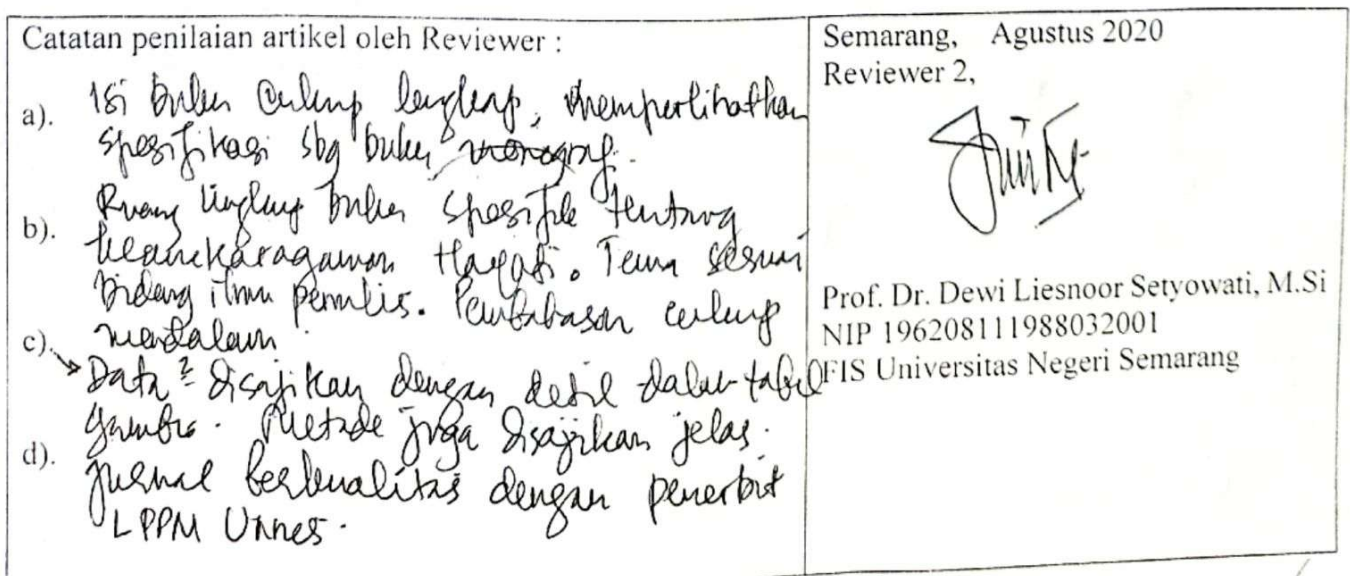 Catatan penilaian artikel oleh Reviewer :
a). Isi buku cukup lengkap, memperlihatkan
spesifikasi sbg buku monograf.
b). Ruang lingkup buku spesifik tentang
keanekaragaman Hayati. Tema sesuai
bidang ilmu penulis. Pembahasan cukup
mendalam
c). Data² disajikan dengan detil dalam tabel
gambar. Metode juga disajikan jelas.
d). Jurnal berkualitas dengan penerbit
LPPM Unnes.
Semarang, Agustus 2020
Reviewer 2,
Prof. Dr. Dewi Liesnoor Setyowati, M.Si
NIP 196208111988032001
FIS Universitas Negeri Semarang